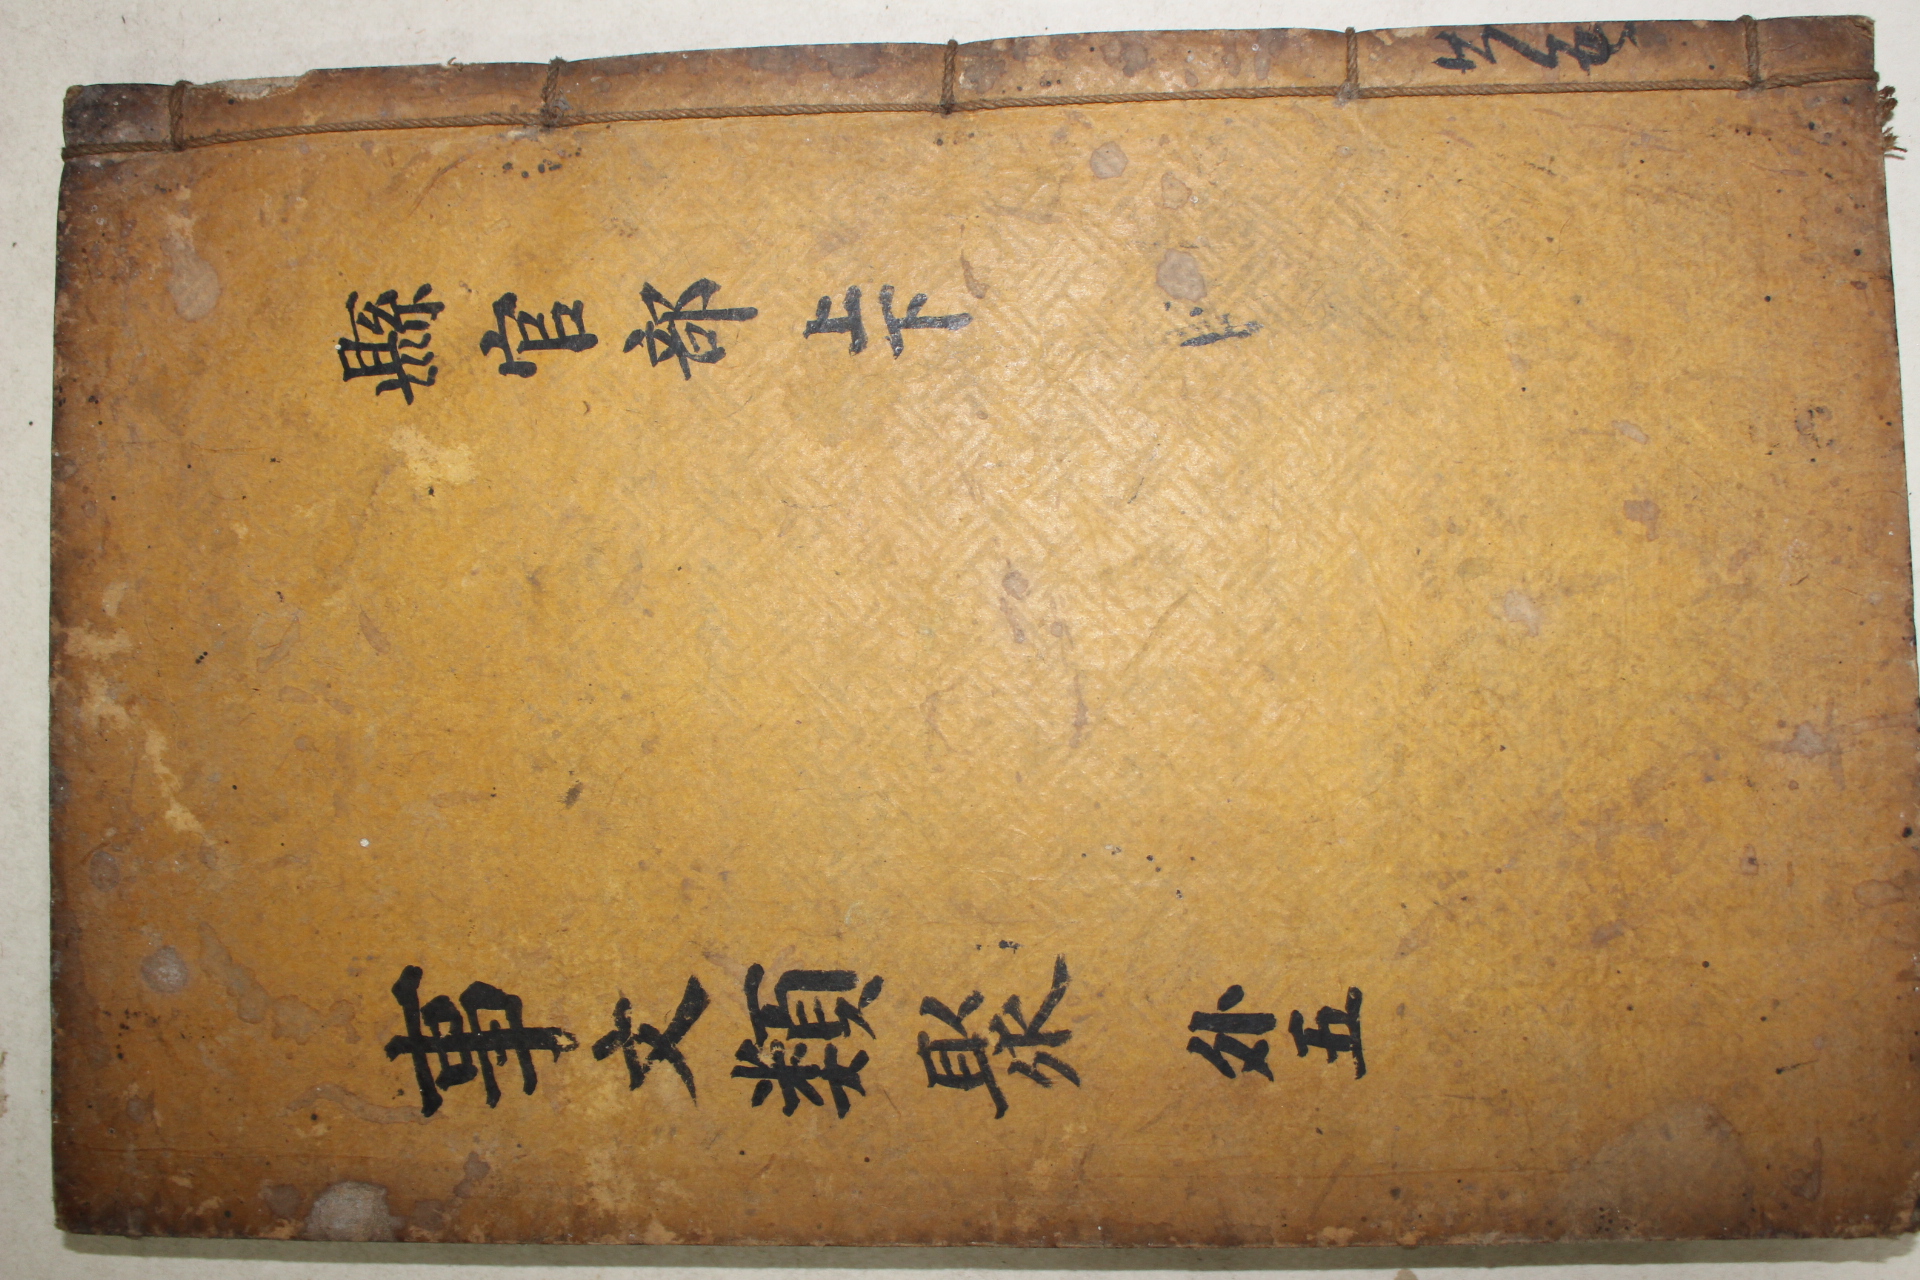 縣官部 上下
事文類聚 外五